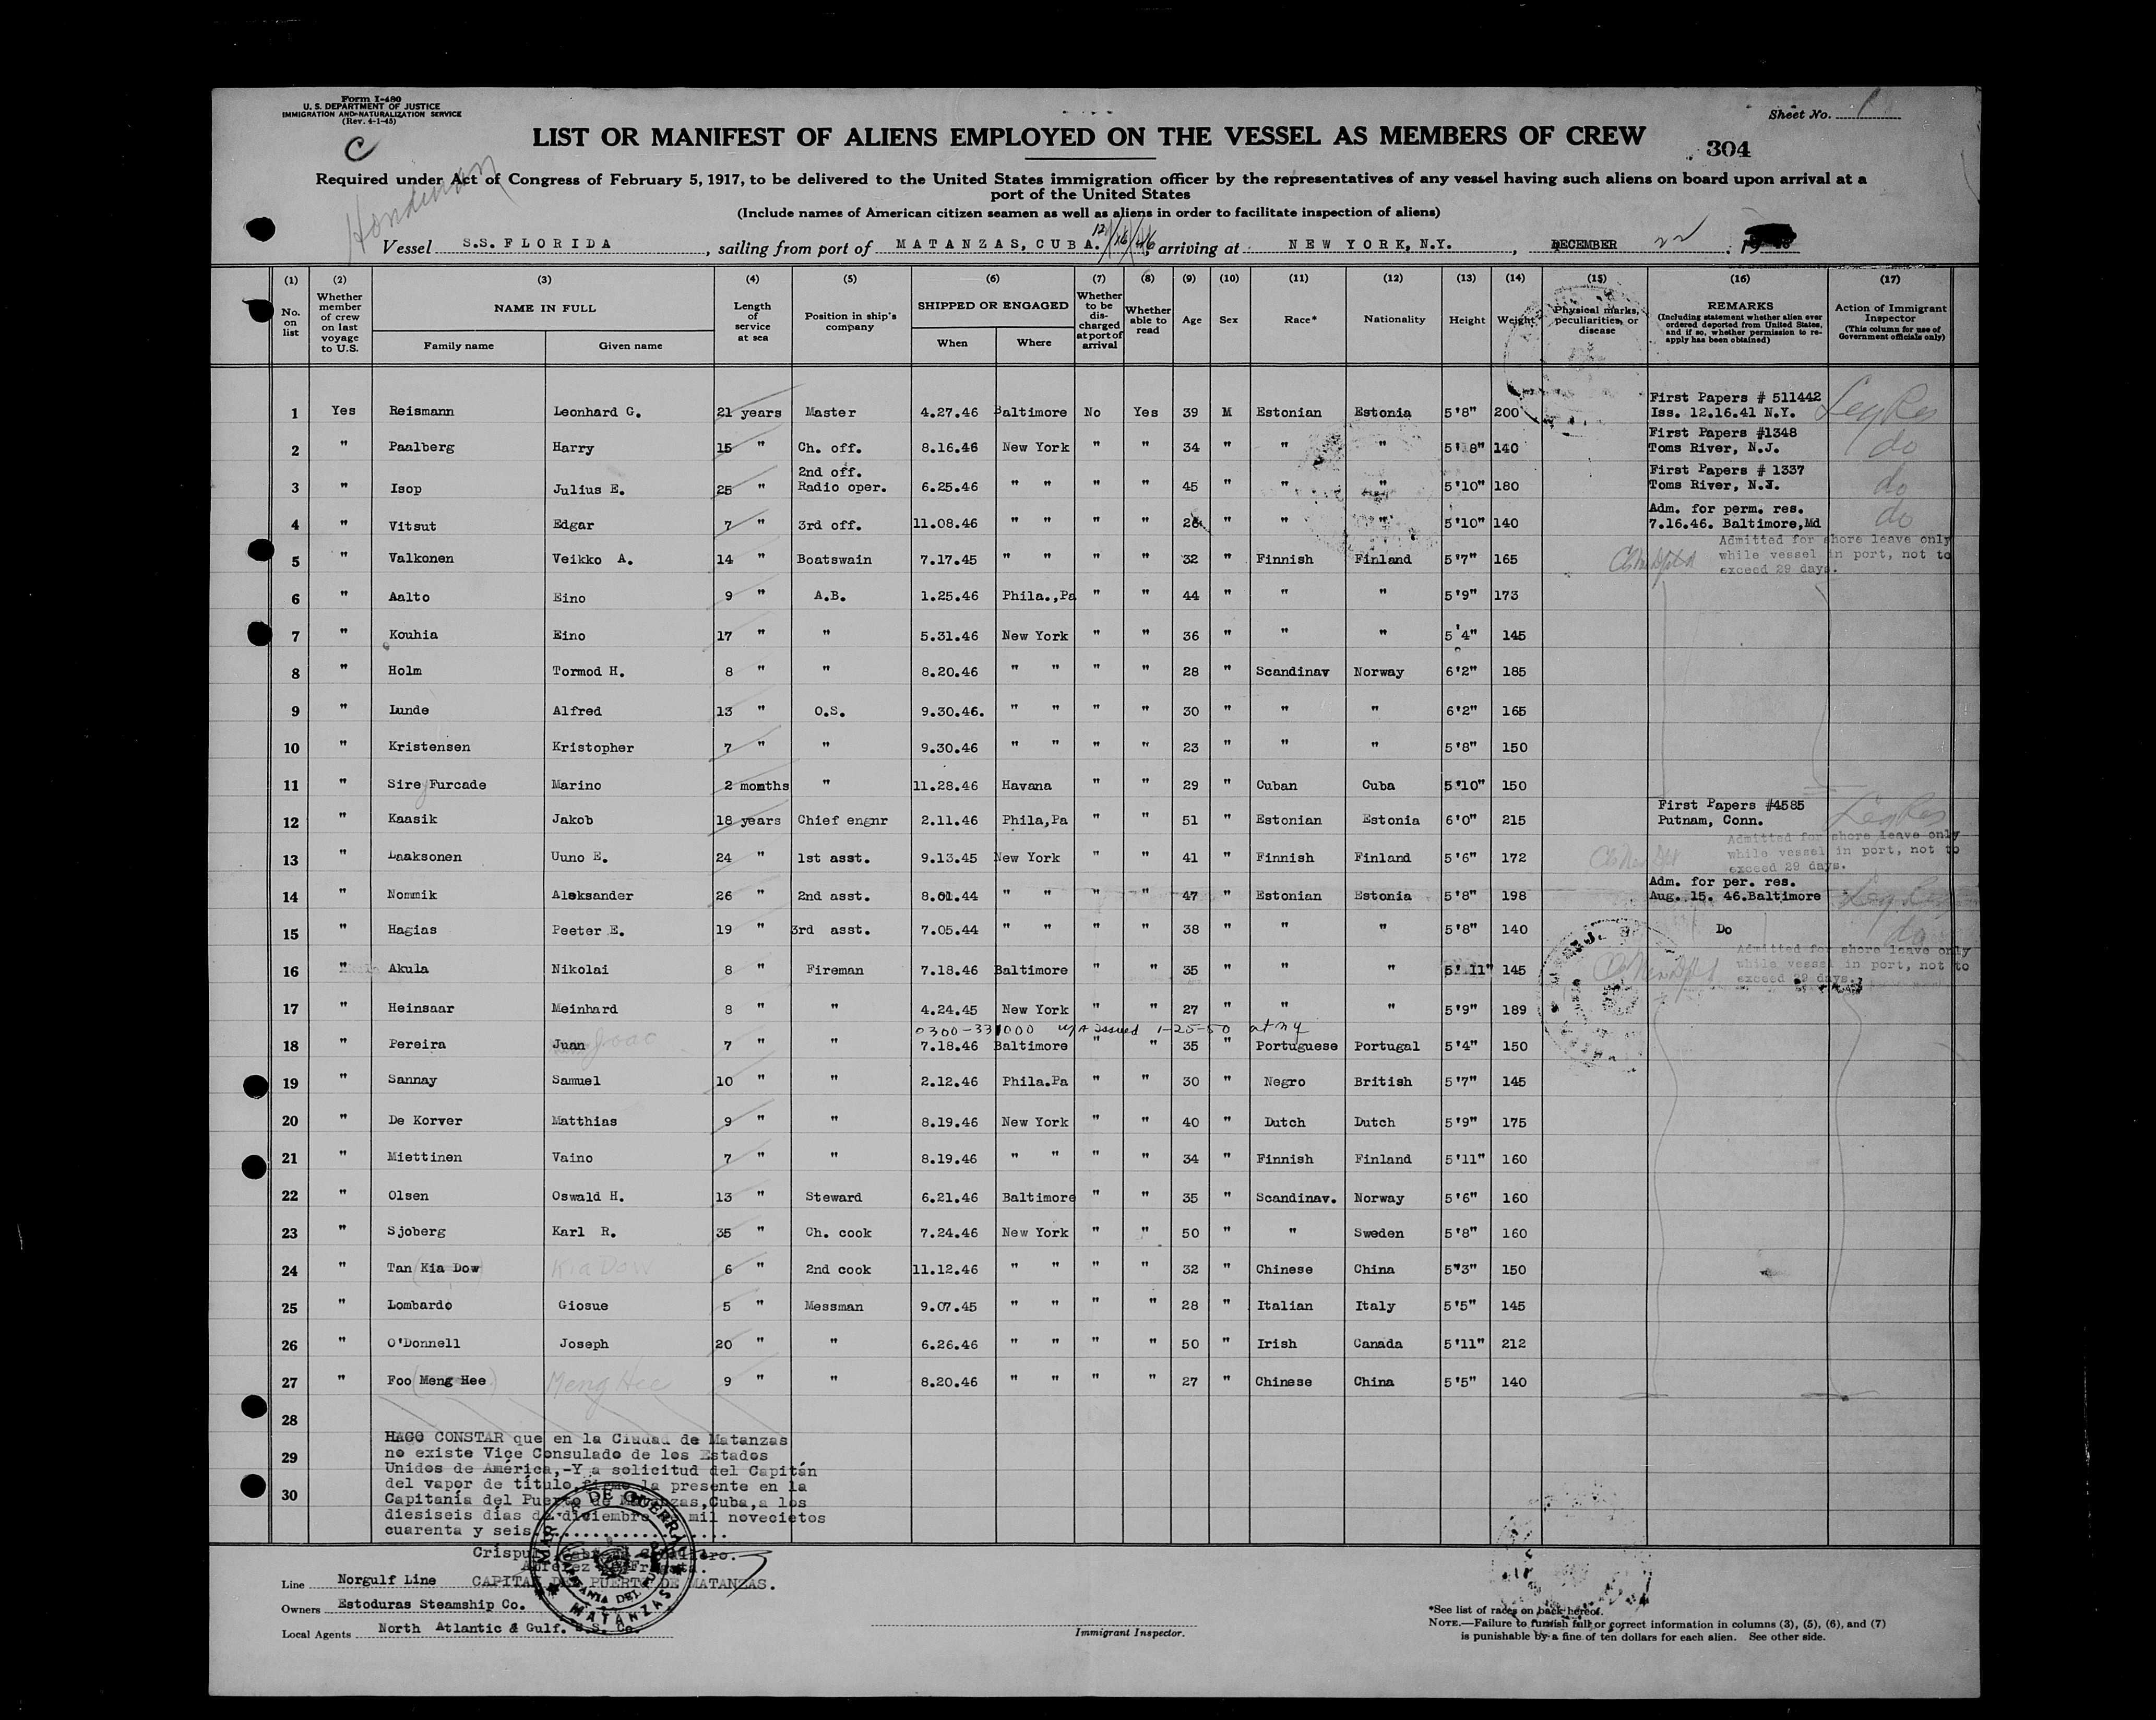 Form I-480
U. S. DEPARTMENT OF JUSTICE
IMMIGRATION AND NATURALIZATION SERVICE
(Rev. 4-1-45)
Sheet No. 1
C
LIST OR MANIFEST OF ALIENS EMPLOYED ON THE VESSEL AS MEMBERS OF CREW
304
Required under Act of Congress of February 5, 1917, to be delivered to the United States immigration officer by the representatives of any vessel having such aliens on board upon arrival at a
port of the United States
(Include names of American citizen seamen as well as aliens in order to facilitate inspection of aliens)
Vessel S.S. FLORIDA, sailing from port of MATANZAS, CUBA. 12/16/46, arriving at NEW YORK, N.Y., DECEMBER 22, 19
(1) (2) (3) (4) (5) (6) (7) (8) (9) (10) (11) (12) (13) (14) (15) (16) (17)
No. on list
Whether member of crew on last voyage to U.S.
NAME IN FULL
Family name
Given name
Length of service at sea
Position in ship's company
SHIPPED OR ENGAGED
When
Where
Whether to be discharged at port of arrival
Whether able to read
Age
Sex
Race*
Nationality
Height
Weight
Physical marks, peculiarities, or disease
REMARKS
(Including statement whether alien ever ordered deported from United States, and if so, whether permission to re-apply has been obtained)
Action of Immigrant Inspector
(This column for use of Government officials only)
1 Yes Reismann Leonhard G. 21 years Master 4.27.46 Baltimore No Yes 39 M Estonian Estonia 5'8" 200 First Papers # 511442 Iss. 12.16.41 N.Y. Leg Res
2 " Paalberg Harry 15 " Ch. off. 8.16.46 New York " " 34 " " " 5'8" 140 First Papers #1348 Toms River, N.J. do
3 " Isop Julius E. 25 " 2nd off. Radio oper. 6.25.46 " " " " 45 " " " 5'10" 180 First Papers # 1337 Toms River, N.J. do
4 " Vitsut Edgar 7 " 3rd off. 11.08.46 " " " " 26 " " " 5'10" 140 Adm. for perm. res. 7.16.46. Baltimore,Md do
5 " Valkonen Veikko A. 14 " Boatswain 7.17.45 " " " " 32 " Finnish Finland 5'7" 165 Admitted for shore leave only while vessel in port, not to exceed 29 days.
6 " Aalto Eino 9 " A.B. 1.25.46 Phila.,Pa " " 44 " " " 5'9" 173
7 " Kouhia Eino 17 " " 5.31.46 New York " " 36 " " " 5'4" 145
8 " Holm Tormod H. 8 " " 8.20.46 " " " " 28 " Scandinav Norway 6'2" 185
9 " Lunde Alfred 13 " O.S. 9.30.46. " " " " 30 " " " 6'2" 165
10 " Kristensen Kristopher 7 " " 9.30.46 " " " " 23 " " " 5'8" 150
11 " Sire Furcade Marino 2 months " 11.28.46 Havana " " 29 " Cuban Cuba 5'10" 150
12 " Kaasik Jakob 18 years Chief engnr 2.11.46 Phila,Pa " " 51 " Estonian Estonia 6'0" 215 First Papers #4585 Putnam, Conn. Leg Res
13 " Laaksonen Uuno E. 24 " 1st asst. 9.13.45 New York " " 41 " Finnish Finland 5'6" 172 Admitted for shore leave only while vessel in port, not to exceed 29 days.
14 " Nommik Aleksander 26 " 2nd asst. 8.01.44 " " " " 47 " Estonian Estonia 5'8" 198 Adm. for per. res. Aug. 15. 46.Baltimore Leg Res
15 " Hagias Peeter E. 19 " 3rd asst. 7.05.44 " " " " 38 " " " 5'8" 140 Do do
16 " Akula Nikolai 8 " Fireman 7.18.46 Baltimore " " 35 " " " 5'11" 145 Admitted for shore leave only while vessel in port, not to exceed 29 days.
17 " Heinsaar Meinhard 8 " " 4.24.45 New York " " 27 " " " 5'9" 189
0300-331000 W/A issued 1-25-50 at NY
18 " Pereira Juan Joao 7 " " 7.18.46 Baltimore " " 35 " Portuguese Portugal 5'4" 150
19 " Sannay Samuel 10 " " 2.12.46 Phila.Pa " " 30 " Negro British 5'7" 145
20 " De Korver Matthias 9 " " 8.19.46 New York " " 40 " Dutch Dutch 5'9" 175
21 " Miettinen Vaino 7 " " 8.19.46 " " " " 34 " Finnish Finland 5'11" 160
22 " Olsen Oswald H. 13 " Steward 6.21.46 Baltimore " " 35 " Scandinav. Norway 5'6" 160
23 " Sjoberg Karl R. 35 " Ch. cook 7.24.46 New York " " 50 " " Sweden 5'8" 160
24 " Tan Kia Dow Kia Dow 6 " 2nd cook 11.12.46 " " " " 32 " Chinese China 5"3" 150
25 " Lombardo Giosue 5 " Messman 9.07.45 " " " " 28 " Italian Italy 5'5" 145
26 " O'Donnell Joseph 20 " " 6.26.46 " " " " 50 " Irish Canada 5'11" 212
27 " Foo Meng Hee Meng Hee 9 " " 8.20.46 " " " " 27 " Chinese China 5'5" 140
28
29
30
HAGO CONSTAR que en la Ciudad de Matanzas
no existe Vice Consulado de los Estados
Unidos de América,-Y a solicitud del Capitán
del vapor de título, firmo la presente en la
Capitanía del Puerto de Matanzas,Cuba,a los
diesiseis días de diciembre mil novecietos
cuarenta y seis
CAPITAN DEL PUERTO DE MATANZAS.
MARINA DE GUERRA
CAPITANIA DEL
MATANZAS
Line Norgulf Line
Owners Estoduras Steamship Co.
Local Agents North Atlantic & Gulf. S.S. Co.
Immigrant Inspector.
*See list of races on back hereof.
NOTE.—Failure to furnish full or correct information in columns (3), (5), (6), and (7)
is punishable by a fine of ten dollars for each alien. See other side.